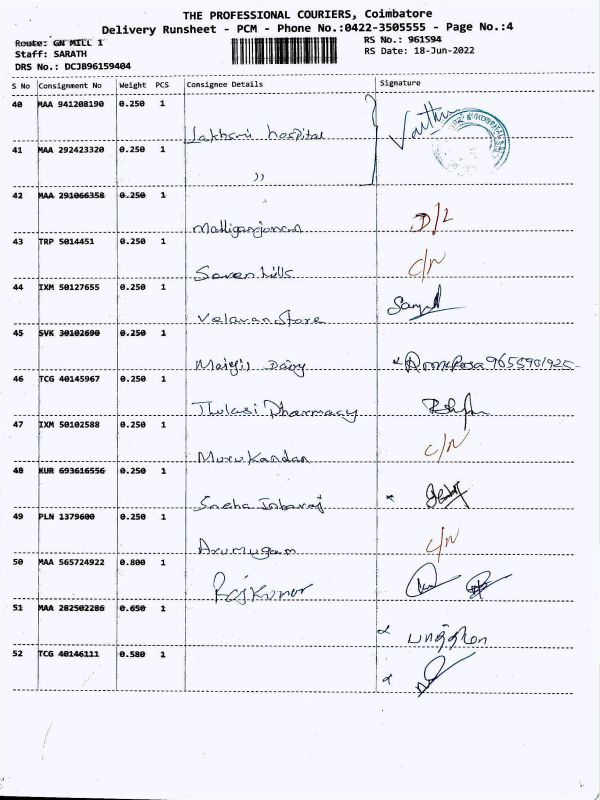 THE PROFESSIONAL COURIERS, Coimbatore
Delivery Runsheet - PCM - Phone No.:0422-3505555 - Page No.:4
Route: GN MILL 1
RS No.: 961594
Staff: SARATH
RS Date: 18-Jun-2022
DRS No.: DCJB96159404
S No Consignment No Weight PCS Consignee Details Signature
40 MAA 941208190 0.250 1
Lakhsmi hospital
41 MAA 292423320 0.250 1
”
42 MAA 291066358 0.250 1
D/L
43 TRP 5014451 0.250 1
Seven hills C/N
44 IXM 50127655 0.250 1
Velavan Store
45 SVK 30102690 0.250 1
Dairy 9655901925
46 TCG 40145967 0.250 1
Thulasi Pharmacy
47 IXM 50102588 0.250 1
Muru Kandan C/N
48 KUR 693616556 0.250 1
Sneha Inbaraj
49 PLN 1379600 0.250 1
Arumugam C/N
50 MAA 565724922 0.800 1
Rajkumar
51 MAA 282502286 0.650 1
52 TCG 40146111 0.580 1